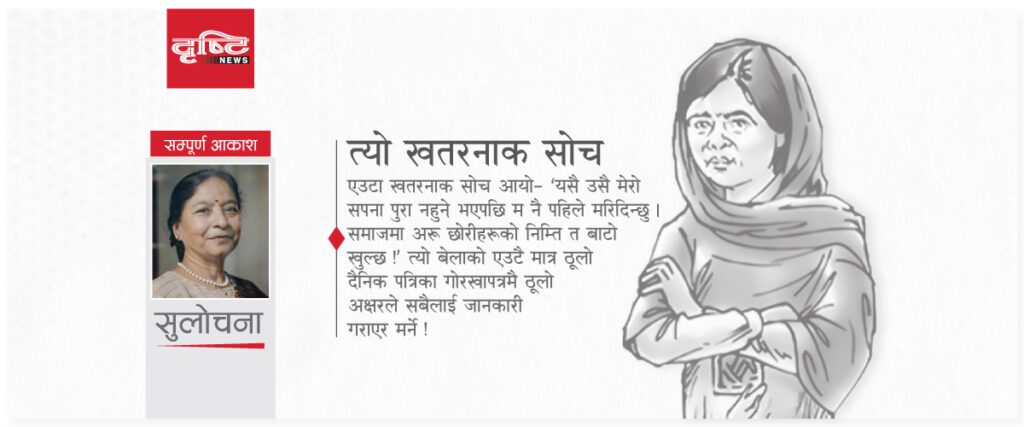 दृष्टि
NEWS
सम्पूर्ण आकाश
सुलोचना
त्यो खतरनाक सोच
एउटा खतरनाक सोच आयो– ‘यसै उसै मेरो
सपना पुरा नहुने भएपछि म नै पहिले मरिदिन्छु ।
समाजमा अरू छोरीहरूको निम्ति त बाटो
खुल्छ !’ त्यो बेलाको एउटै मात्र ठूलो
दैनिक पत्रिका गोरखापत्रमै ठूलो
अक्षरले सबैलाई जानकारी
गराएर मर्ने !